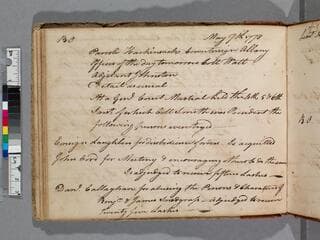 BO May 7th 1778
Parole Countersign Albany
Officer of the day tomorrow Coll. Watt
Adjutant Johnston
Detail as usual
At a Genl. Court Martial held the 4th, 5 & 6th
Inst. of which Coll. Smith was President the
following Persons were tryed
Laughlen for disobedience of orders Is acquitted
John for Mutiny & encouraging others to do the same
Is adjudged to receive fifteen Lashes
Danl. Callaghan for abusing the Persons & Characters of
& James Adjudged to receive
Twenty five Lashes
BO